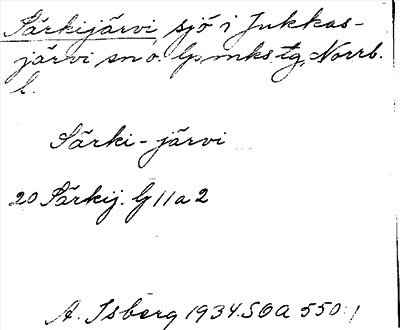 Särkijärvi, sjö i Jukkas-
järvi sn o. lpmks tg, Norrb.
l.
Särki-järvi
20 Särkij. lg 11 a 2
A. Isberg 1934. SOA 550:1